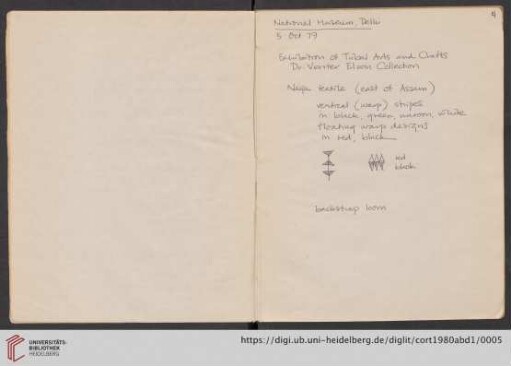 9
National Museum, Delhi
5 Oct 79
Exhibition of Tribal Arts and Crafts
Dr. Verrier Elwin Collection
Naga textile (east of Assam)
ventral (warp) stripes
in black, green, maroon, white
floating warp designs
in red, black
red
black
backstrap loom
UNIVERSITÄTS-
BIBLIOTHEK
HEIDELBERG
https://digi.ub.uni-heidelberg.de/diglit/cort1980abd1/0005